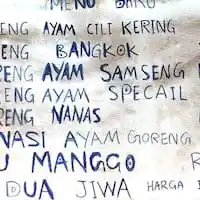 MENU BARU
ENG AYAM CILI KERING
ENG BANGKOK
RENG AYAM SAMSENG
ENG AYAM SPECAIL
RENG NANAS
NASI AYAM GORENG
U MANGGO R
DUA JIWA HARGA